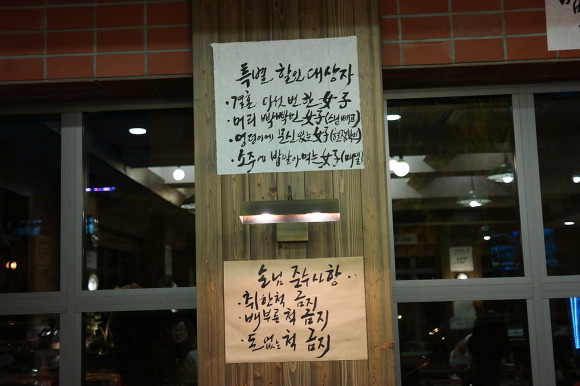 특별 할인 대상자
· 결혼 다섯번 한 女子
· 머리 빡빡인 女子(스님빼고)
· 엉덩이에 문신있는 女子(현장확인)
· 소주에 밥말아먹는 女子(매일)
손님 준수사항
· 취한척 금지
· 배부른척 금지
· 돈없는척 금지